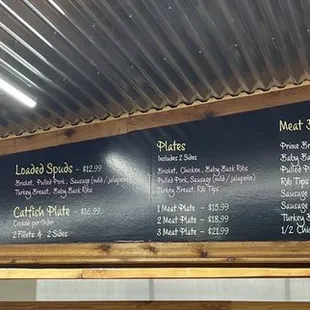 Loaded Spuds - $12.99
Brisket, Pulled Pork, Sausage (mild / jalapeño)
Turkey Breast, Baby Back Ribs
Catfish Plate - $16.99
Cooked per Order
2 Fillets & 2 Sides
Plates
Includes 2 Sides
Brisket, Chicken, Baby Back Ribs
Pulled Pork, Sausage (mild / jalapeño)
Turkey Breast, Rib Tips
1 Meat Plate - $15.99
2 Meat Plate - $18.99
3 Meat Plate - $21.99
Meat
Prime
Baby
Pulled
Rib Tips
Sausage
Sausage
Turkey
1/2